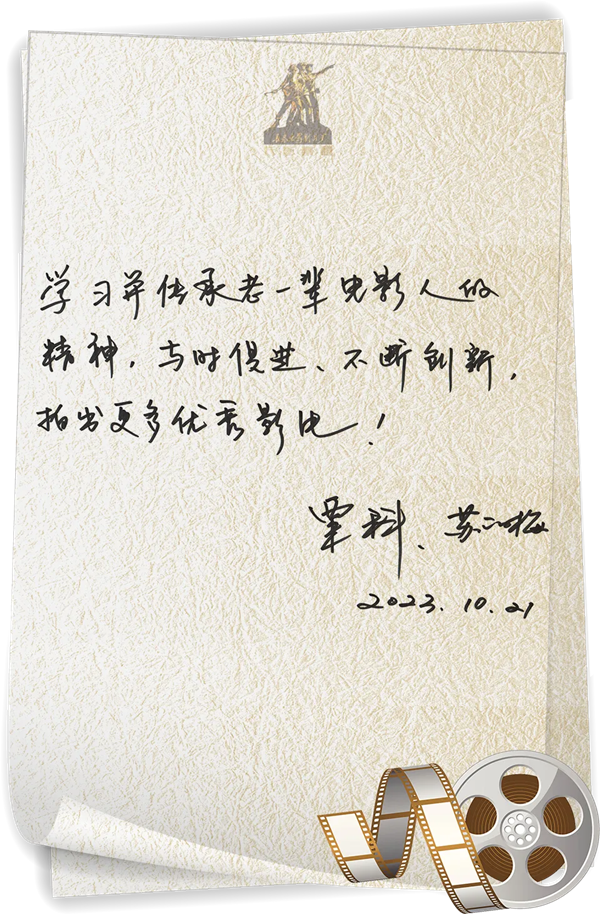 长春电影制片厂
学习并传承老一辈电影人的
精神，与时俱进、不断创新，
拍出更多优秀影电！
科、苏梅
2023.10.21